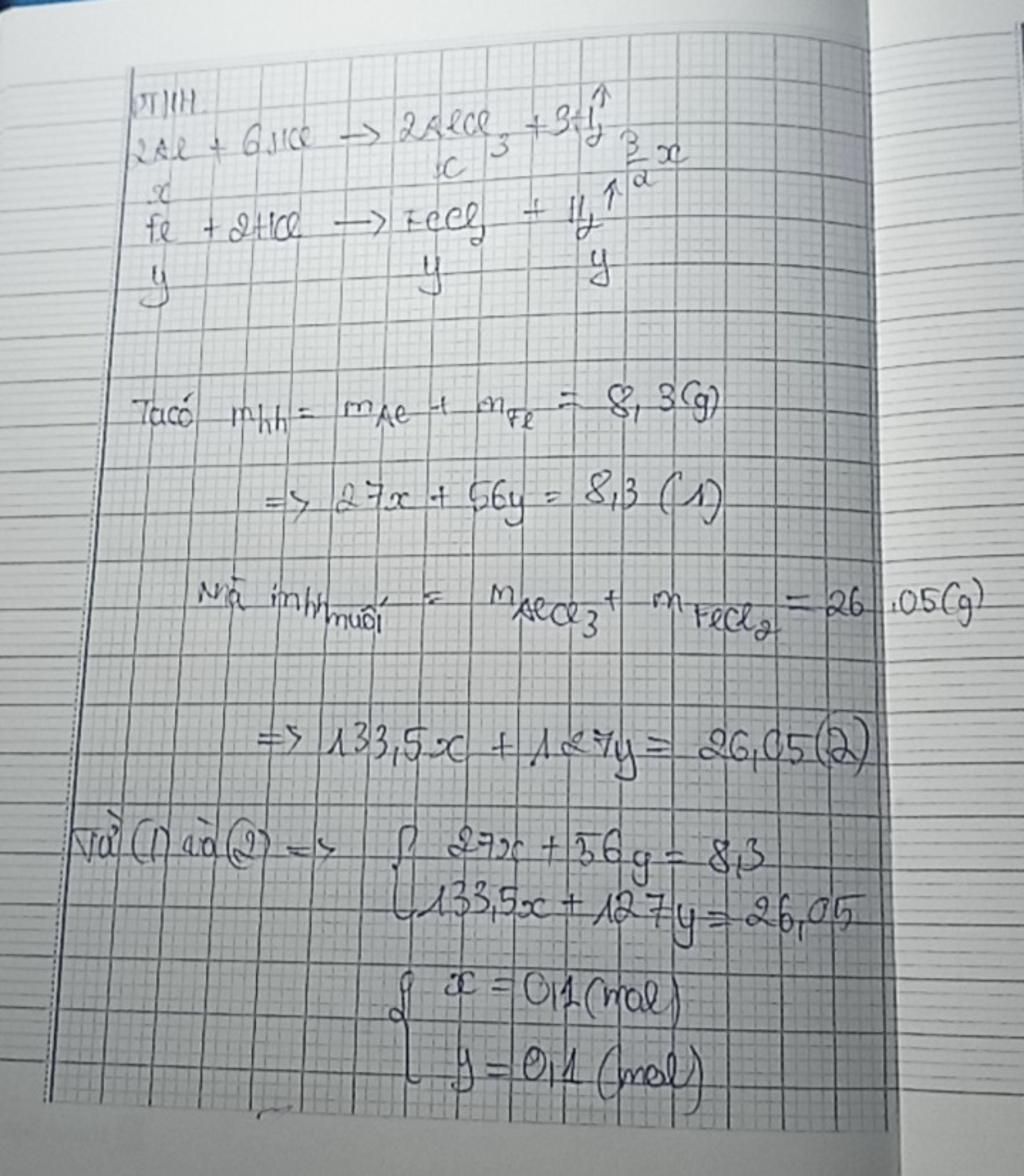 PTHH
2Al + 6HCl → 2AlCl3 + 3H2↑
x x 3/2 x
Fe + 2HCl → FeCl2 + H2↑
y y y
Ta có mhh = mAl + mFe = 8,3(g)
=> 27x + 56y = 8,3 (1)
Mà mhh muối = mAlCl3 + mFeCl2 = 26.05(g)
=> 133,5x + 127y = 26,05(2)
Từ (1) và (2) => { 27x + 56y = 8,3
133,5x + 127y = 26,05
{ x = 0,1 (mol)
y = 0,1 (mol)